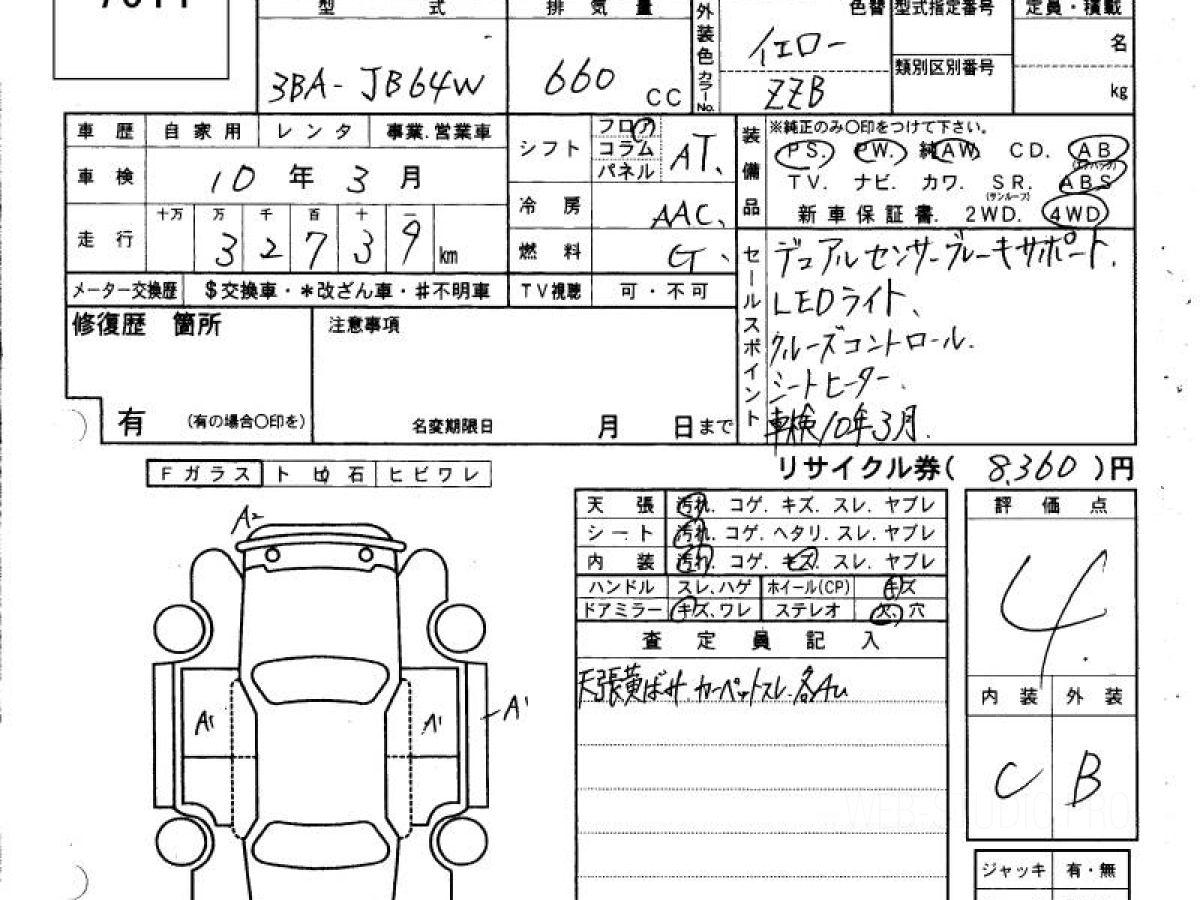 型 式 排 気 量 外装色 色替 型式指定番号 定員・積載
3BA-JB64W 660 CC カラーNo. イエロー 名
ZZB 類別区別番号 kg
車 歴 自 家 用 レ ン タ 事業.営業車 シフト フロア コラム パネル AT、 装備品 ※純正のみ〇印をつけて下さい。
PS. PW. 純AW CD. AB(エアバッグ)
車 検 10 年 3 月 TV. ナビ. カワ. SR.(サンルーフ) ABS
冷 房 AAC、 新車保証書. 2WD. 4WD
走 行 十万 万 千 百 十 一
3 2 7 3 9 km 燃 料 G、 セールスポイント デュアルセンサーブレーキサポート.
メーター交換歴 $交換車・*改ざん車・#不明車 TV視聴 可・不可 LEDライト、
修復歴 箇所 注意事項 クルーズコントロール.
シートヒーター.
有 (有の場合〇印を) 名変期限日 月 日まで 車検10年3月.
リサイクル券( 8,360 )円
Fガラス ト ビ 石 ヒビワレ
天 張 汚れ. コゲ. キズ. スレ. ヤブレ 評 価 点
A2 シ ー ト 汚れ. コゲ. ヘタリ. スレ. ヤブレ
内 装 汚れ. コゲ. キズ. スレ. ヤブレ 4.
ハンドル スレ、ハゲ ホイール(CP) キズ
ドアミラー キズ、ワレ ステレオ 欠、穴
査 定 員 記 入
天張黄ばみ.カーペットスレ.各AU 内 装 外 装
A1 A1 A1
C B
WEB STUDIO PRO
ジャッキ 有・無